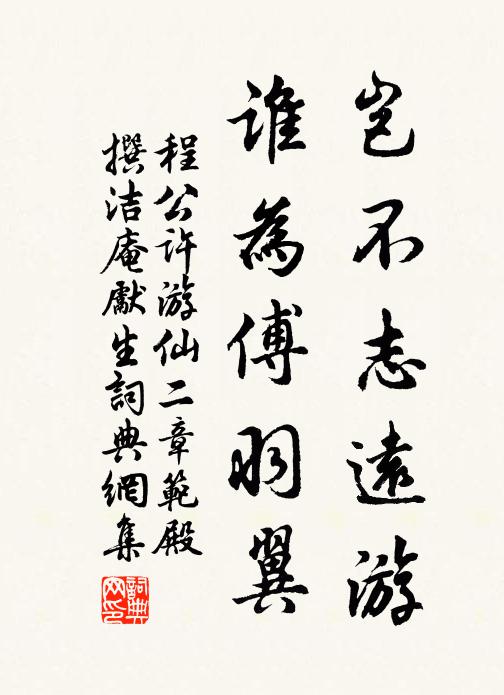 豈不志遠游
誰為傅羽翼
程公許游仙二章範殿
撰洁庵獻生詞典網集
詞典网印